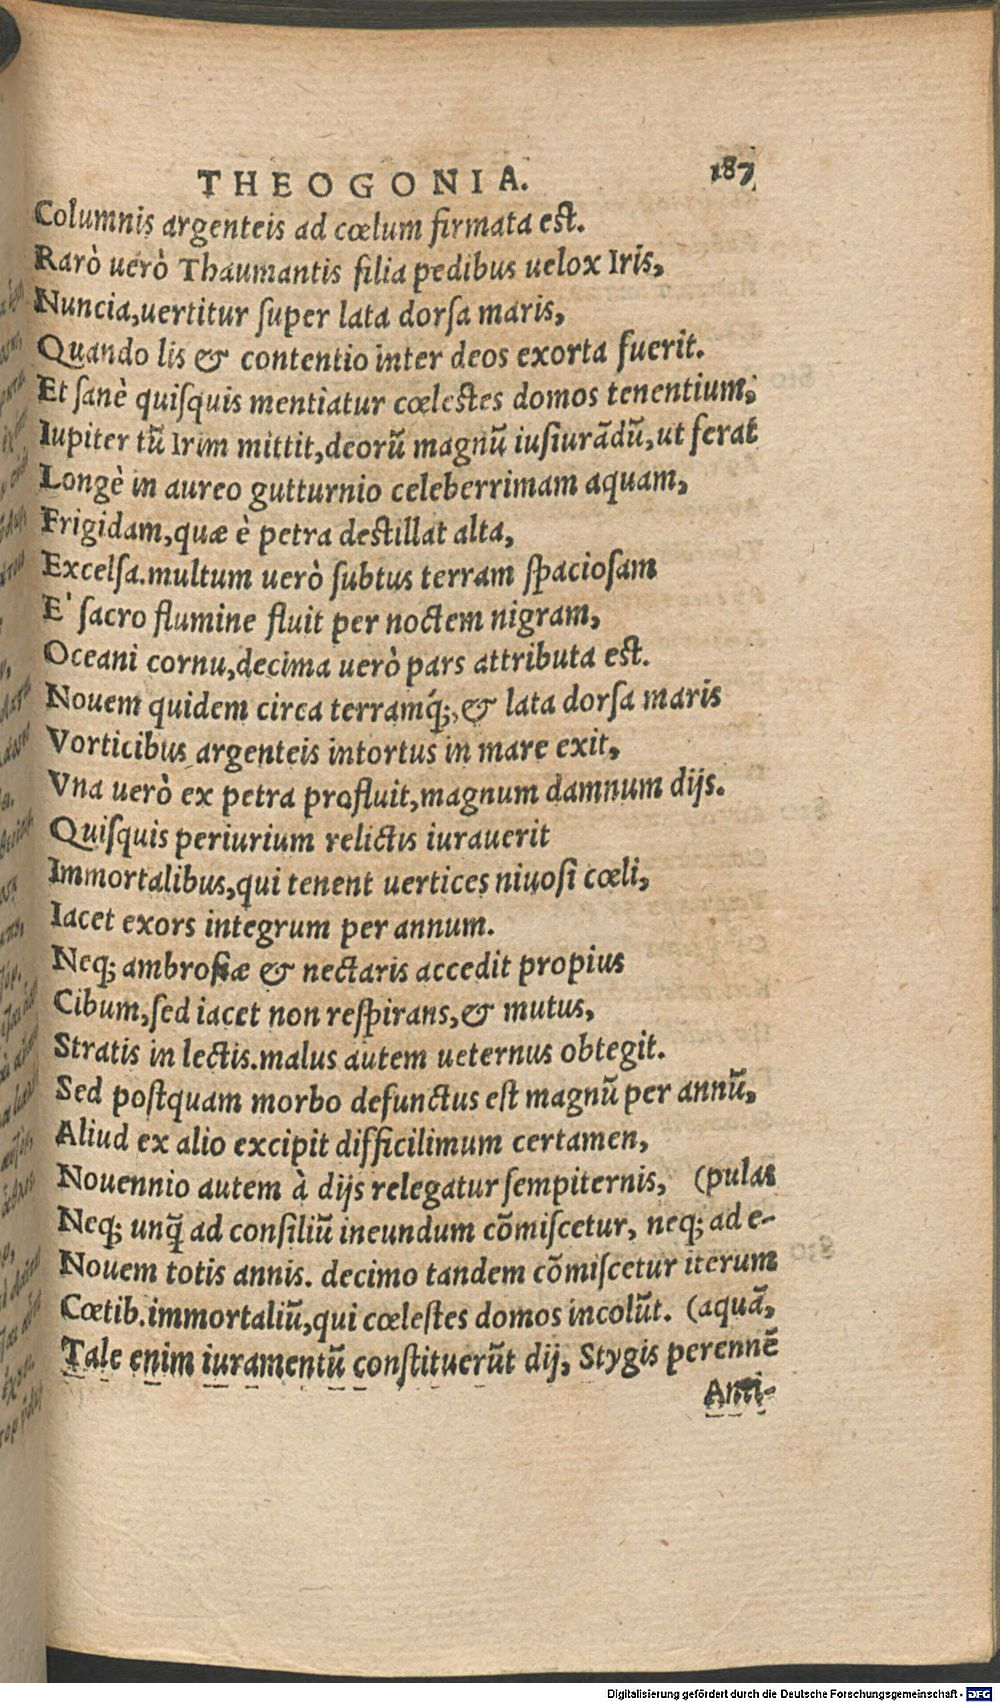 THEOGONIA. 187
Columnis argenteis ad cœlum firmata est.
Rarò uerò Thaumantis filia pedibus uelox Iris,
Nuncia,uertitur ſuper lata dorſa maris,
Quando lis & contentio inter deos exorta fuerit.
Et ſanè quiſquis mentiatur cœlestes domos tenentium;
Iupiter tũ Irim mittit,deorũ magnũ iuſiurãdũ,ut ferat
Longè in aureo gutturnio celeberrimam aquam,
Frigidam,quæ è petra destillat alta,
Excelſa.multum uerò ſubtus terram ſpacioſam
E' ſacro flumine fluit per noctem nigram,
Oceani cornu,decima uerò pars attributa est.
Nouem quidem circa terramq́;,& lata dorſa maris
Vorticibus argenteis intortus in mare exit,
Vna uerò ex petra profluit,magnum damnum dijs.
Quiſquis periurium relictis iurauerit
Immortalibus,qui tenent uertices niuoſi cœli,
Iacet exors integrum per annum.
Neq; ambroſiæ & nectaris accedit propius
Cibum,ſed iacet non reſpirans,& mutus,
Stratis in lectis.malus autem ueternus obtegit.
Sed poſtquam morbo defunctus eſt magnũ per annũ,
Aliud ex alio excipit difficilimum certamen,
Nouennio autem à dijs relegatur ſempiternis, (pulas
Neq; unq̃ ad conſiliũ ineundum cõmiſcetur, neq; ad e-
Nouem totis annis. decimo tandem cõmiſcetur iterum
Cœtib.immortaliũ,qui cœleſtes domos incolũt. (aquã,
Tale enim iuramentũ conſtituerũt dij, Stygis perennẽ
Anti-
Digitalisierung gefördert durch die Deutsche Forschungsgemeinschaft - DFG